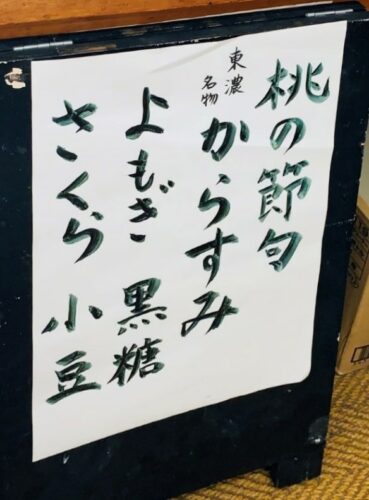 桃の節句
東濃名物
からすみ
よもぎ 黒糖
さくら 小豆